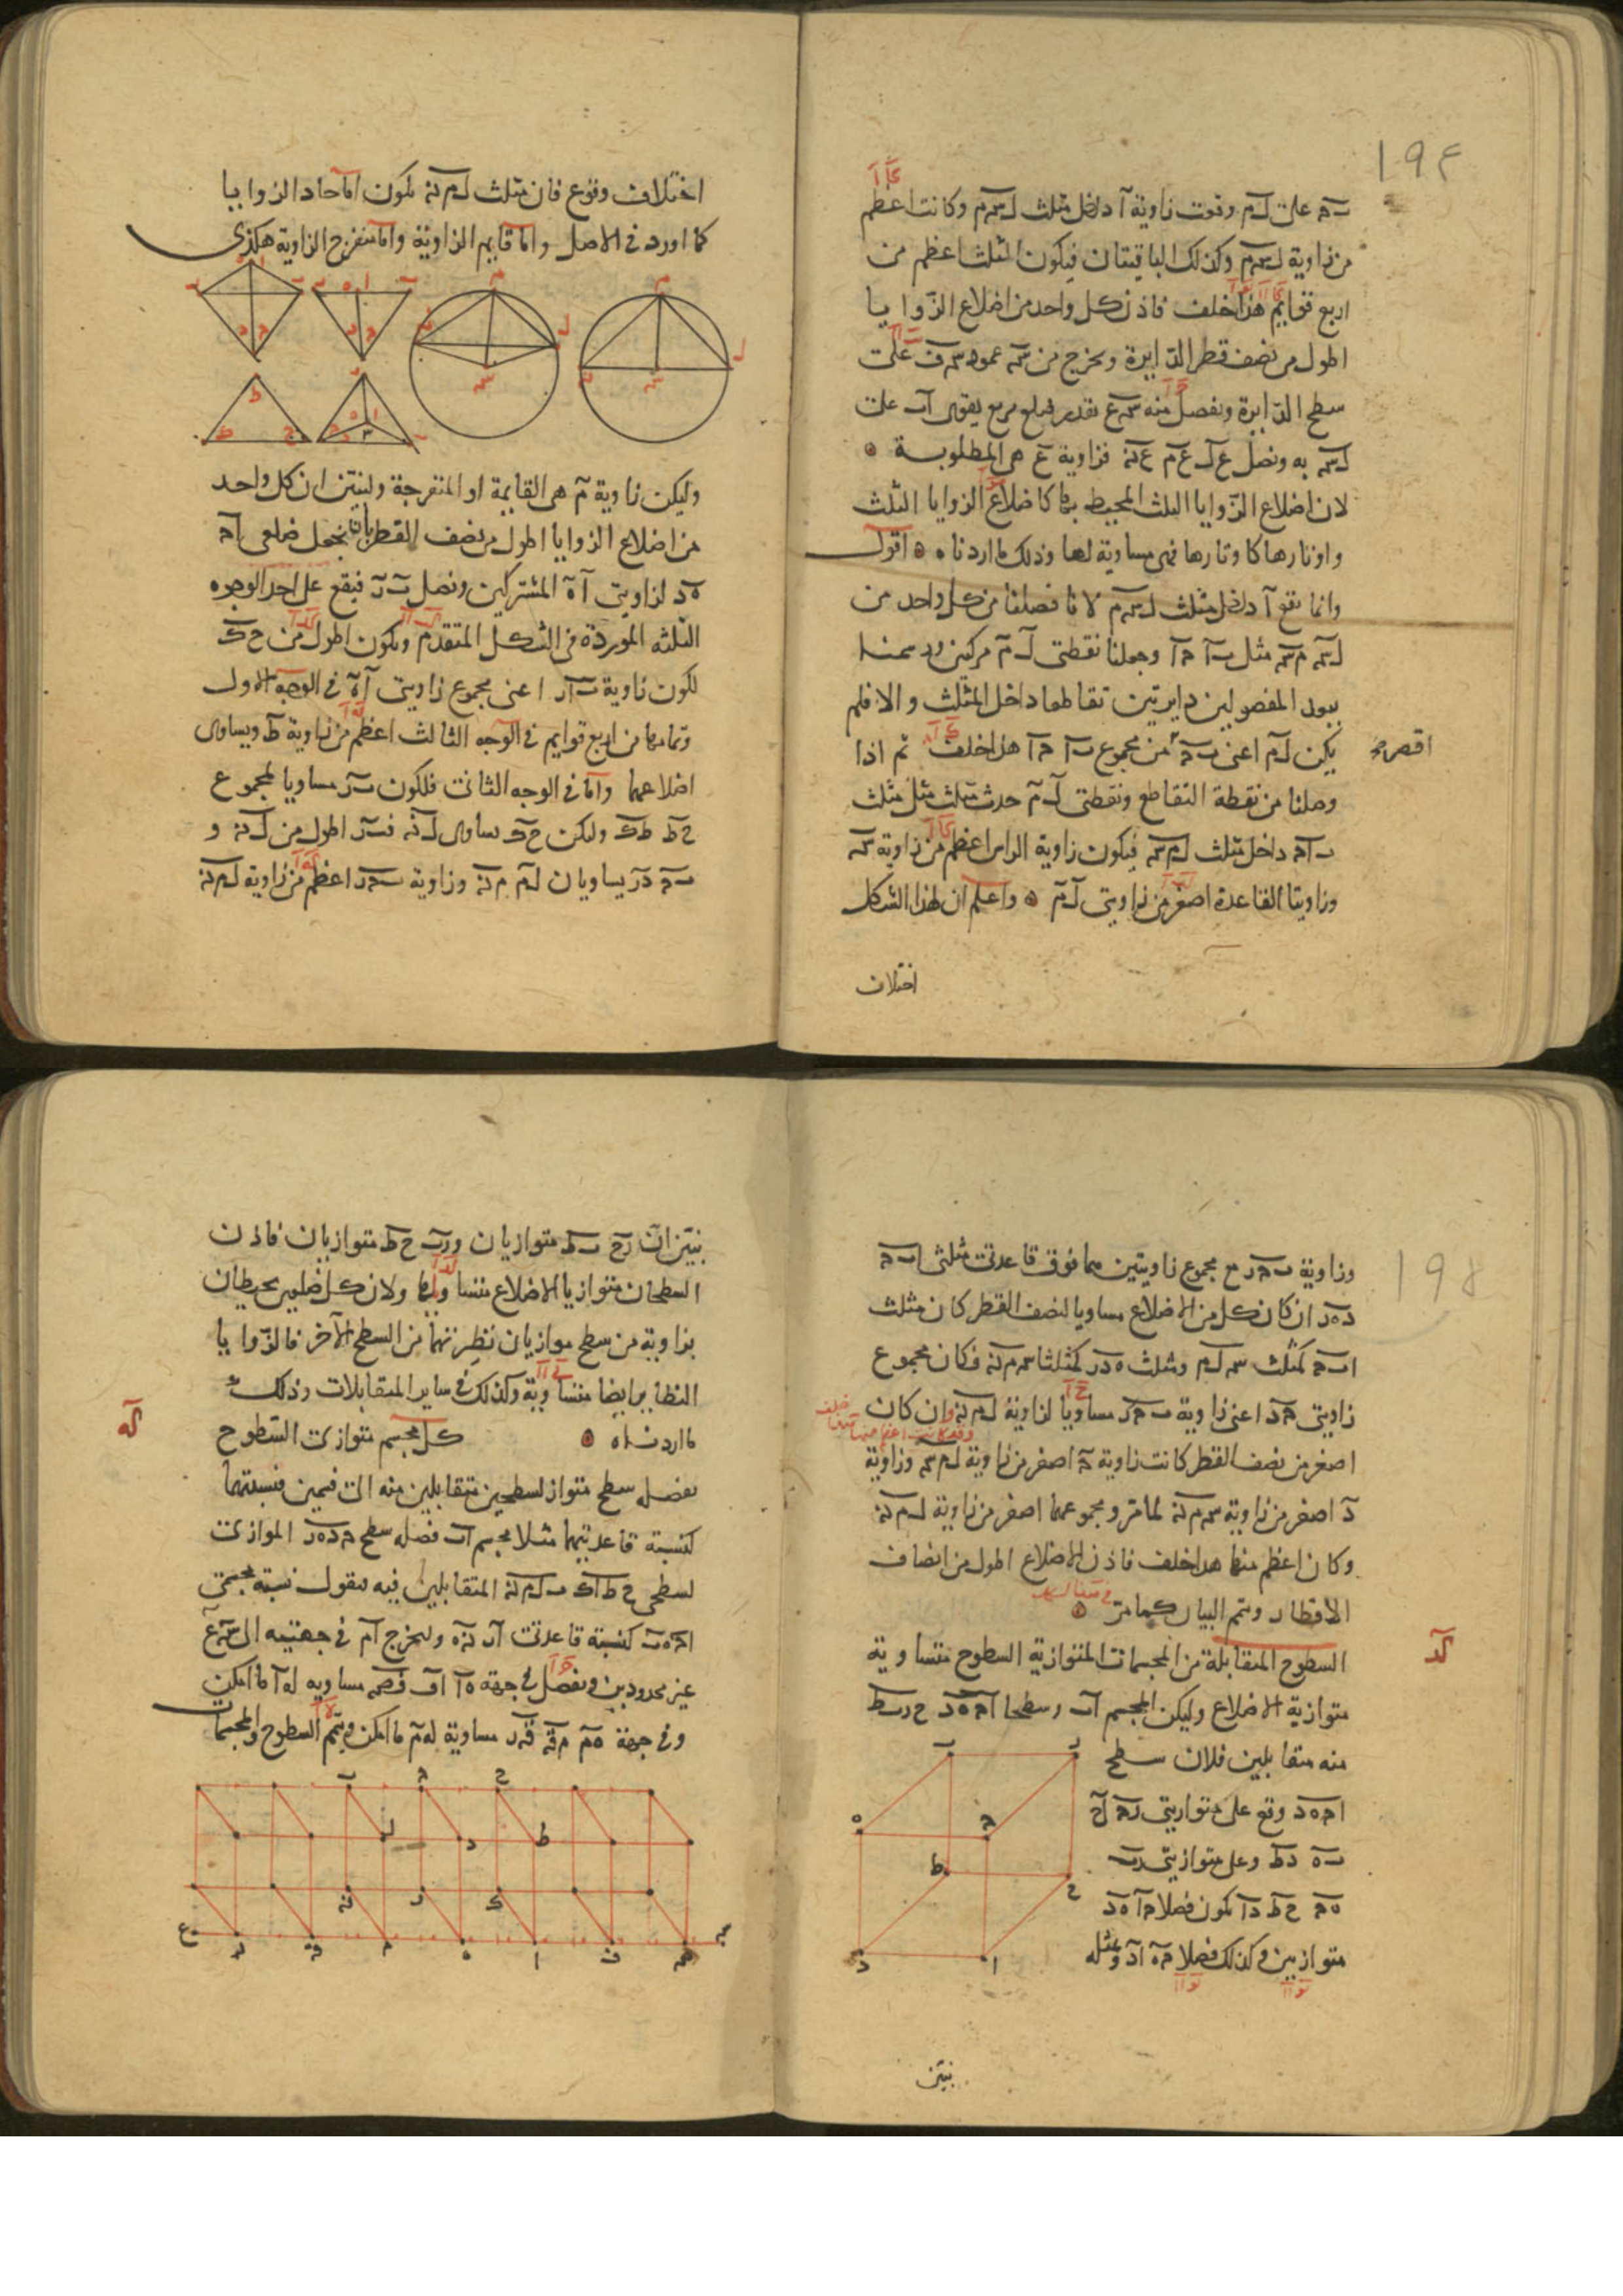 ١٩٤
ب‍ج على ل‍م وقعت زاوية آ داخل مثلث ل‍س‍م وكانت اعظم
من زاوية ل‍س‍م وكذلك الباقيتان فيكون الثلث اعظم من
اربع قوايم هذا خلف فاذن كل واحد من اضلاع الزوايا
اطول من نصف قطر الدايرة ونخرج من س‍ه عمود س‍ف على
سطح الدايرة ونفصل منه س‍ع بقدر ضلع مربع يقوى آب على
ل‍س به ونصل ع‍ل ع‍م ع‍ن فزاوية ع هى المطلوبة
لان اضلاع الزوايا الثلث المحيط بها كاضلاع الزوايا الثلث
واوتارها كاوتارها فهى مساوية لها وذلك ما اردناه اقول
وانما تقع آ داخل مثلث ل‍س‍م لانا فصلنا من كل واحد من
ل‍س م‍س مثل ب‍آ ج‍آ وجعلنا نقطتى ل م مركزين ورسمنا
ببعد المفصولين دايرتين تقاطعا داخل المثلث والا فلم
يكن ل‍م اعنى ب‍ج من مجموع ب‍آ ج‍آ هذا خلف ثم اذا
اقصر
وصلنا من نقطة التقاطع ونقطتى ل م حدث مثلث مثل مثلث
ب‍ا‍ج داخل مثلث ل‍م‍س فيكون زاوية الراس اعظم من زاوية س
وزاويتا القاعدة اصغر من زاويتى ل م واعلم ان لهذا الشكل
اختلاف
اختلاف وقوع فان مثلث ل‍م‍ن يكون اما حاد الزوايا
كما اورد فى الاصل واما قايم الزاوية واما منفرج الزاوية هكذى
وليكن زاوية م هى القايمة او المنفرجة ولنبين ان كل واحد
من اضلاع الزوايا اطول من نصف القطر بان نجعل ضلعى آج
ه‍د لزاويتى آ ه المشتركين ونصل ب‍ر فيقع على احد الوجوه
الثلثه الموردة فى الشكل المتقدم ويكون اطول من ح‍ك
لكون زاوية ب‍ا‍ر اعنى مجموع زاويتى آ ه فى الوجه الاول
وتمامها من اربع قوايم فى الوجه الثالث اعظم من زاوية ط ويساوى
اضلاعهما واما فى الوجه الثانى فلكون ب‍ر مساويا لمجموع
ح‍ط ط‍ك وليكن ح‍ك يساوى ل‍ن فب‍ر اطول من ل‍ن و
ب‍ج ج‍ر يساويان ل‍م م‍ن وزاوية ب‍ج‍ر اعظم من زاوية ل‍م‍ن
١٩٥
وزاوية ب‍ج‍ر مع مجموع زاويتين مما فوق قاعدتى مثلثى ا‍ب‍ج
د‍ه‍ر ان كان كل من الاضلاع مساويا لنصف القطر كان مثلث
ا‍ب‍ج كمثلث س‍ل‍م ومثلث ه‍د‍ر كمثلث س‍م‍ن فكان مجموع
زاويتى ج‍د اعنى زاوية ب‍ج‍ر مساويا لزاوية ل‍م‍ن وان كان
اصغر من نصف القطر كانت زاوية ج اصغر من زاوية ل‍م‍س وزاوية
د اصغر من زاوية س‍م‍ن لما مر ومجموعهما اصغر من زاوية ل‍م‍ن
وكان اعظم منها هذا خلف فاذن الاضلاع اطول من انصاف
الاقطار ويتم البيان كما مر
كد
السطوح المتقابلة من المجسمات المتوازية السطوح متساوية
متوازية الاضلاع وليكن المجسم آب وسطحا ا‍ج‍ه‍د ح‍ر‍ب‍ط
منه متقابلين فلان سطح
ا‍ج‍ه‍د وقع على متوازيتى ر‍ج ا‍ح
ب‍ه د‍ط وعلى متوازيتى ر‍ب
ه‍ج ح‍ط د‍ا يكون فصلا ج‍ا ه‍د
متوازيين وكذلك فصلا ج‍ه ا‍د ومثله
نبين
نبين ان ر‍ح ب‍ط متوازيان ور‍ب ح‍ط متوازيان فاذن
السطحان متوازيا الاضلاع متساويان ولان كل ضلعين يحيطان
بزاوية من سطح موازيان نظيرتهما من السطح الآخر فالزوايا
النظاير ايضا متساوية وكذلك فى ساير المتقابلات وذلك
ما اردناه كل مجسم متوازى السطوح
كه
يفصله سطح متواز لسطحين متقابلين منه الى قسمين فنسبتهما
كنسبة قاعدتيهما مثلا مجسم آب فصله سطح ج‍د‍ه‍ر الموازى
لسطحى ح‍ط‍ا‍ك ب‍ل‍م‍ن المتقابلين فيه فنقول نسبة مجسمى
ا‍ج ه‍ب كنسبة قاعدتى ا‍ر ن‍ه ولنخرج ا‍م فى جهتيه الى س‍ع
غير محدودين ونفصل فى جهة ه‍ا ا‍ف ف‍ص مساويه له‍ا ما امكن
وفى جهة ه‍م م‍ق ق‍ر مساوية له‍م ما امكن ويتم السطوح والمجسمات